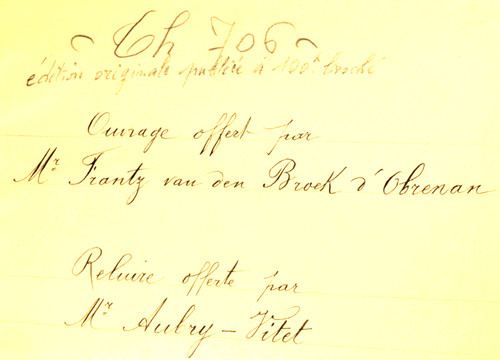 ~ Th 706 ~
édition originale publiée à 100 f. broché
Ouvrage offert par
Mr. Frantz van den Broek d'Obrenan
Reliure offerte par
Mr. Aubry-Vitet